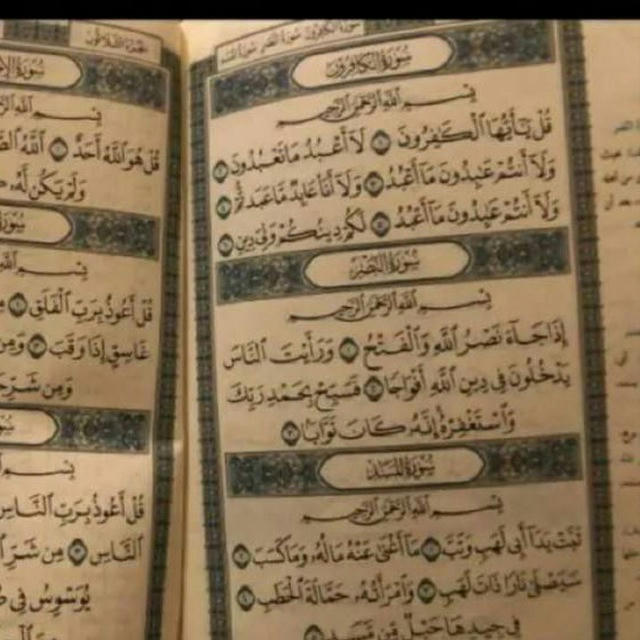 سورة الكافرون سورة النصر سورة المسد
سُورَةُ الكَافِرُونَ
بِسْمِ ٱللَّهِ ٱلرَّحْمَٰنِ ٱلرَّحِيمِ
قُلْ يَٰٓأَيُّهَا ٱلْكَٰفِرُونَ ١ لَآ أَعْبُدُ مَا تَعْبُدُونَ ٢
وَلَآ أَنتُمْ عَٰبِدُونَ مَآ أَعْبُدُ ٣ وَلَآ أَنَا۠ عَابِدٌ مَّا عَبَدتُّمْ ٤
وَلَآ أَنتُمْ عَٰبِدُونَ مَآ أَعْبُدُ ٥ لَكُمْ دِينُكُمْ وَلِىَ دِينِ ٦
سُورَةُ النَّصْرِ
بِسْمِ ٱللَّهِ ٱلرَّحْمَٰنِ ٱلرَّحِيمِ
إِذَا جَآءَ نَصْرُ ٱللَّهِ وَٱلْفَتْحُ ١ وَرَأَيْتَ ٱلنَّاسَ
يَدْخُلُونَ فِى دِينِ ٱللَّهِ أَفْوَاجًا ٢ فَسَبِّحْ بِحَمْدِ رَبِّكَ
وَٱسْتَغْفِرْهُ إِنَّهُۥ كَانَ تَوَّابًۢا ٣
سُورَةُ المَسَدِ
بِسْمِ ٱللَّهِ ٱلرَّحْمَٰنِ ٱلرَّحِيمِ
تَبَّتْ يَدَآ أَبِى لَهَبٍ وَتَبَّ ١ مَآ أَغْنَىٰ عَنْهُ مَالُهُۥ وَمَا كَسَبَ ٢
سَيَصْلَىٰ نَارًا ذَاتَ لَهَبٍ ٣ وَٱمْرَأَتُهُۥ حَمَّالَةَ ٱلْحَطَبِ ٤
فِى جِيدِهَا حَبْلٌ مِّن مَّسَدٍۭ ٥
سُورَةُ الإ
بِسْمِ ٱللَّهِ
قُلْ هُوَ ٱللَّهُ أَحَدٌ ١ ٱللَّهُ
وَلَمْ يَكُن لَّهُۥ
بِسْمِ ٱللَّهِ
قُلْ أَعُوذُ بِرَبِّ ٱلْفَلَقِ ١
غَاسِقٍ إِذَا وَقَبَ ٣ وَمِن
وَمِن شَرِّ
بِسْمِ
قُلْ أَعُوذُ بِرَبِّ ٱلنَّاسِ
ٱلنَّاسِ ٣ مِن شَرِّ
يُوَسْوِسُ فِى